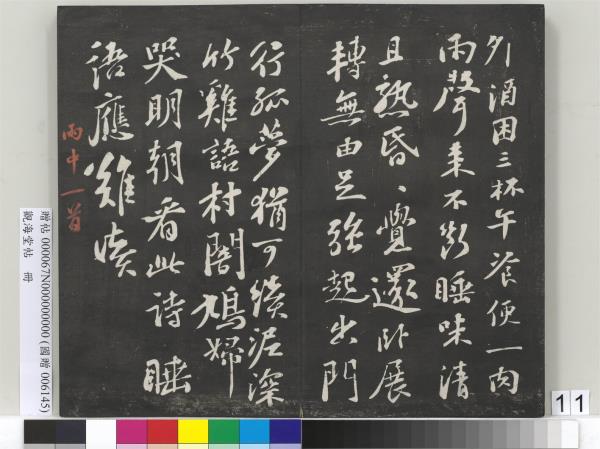 夘酒困三杯午飡便一肉
雨聲来不斷睡味清
且熟昏、覺還卧展
轉無由足强起出門
行孤夢猶可續泥深
竹雞語村闇鳩婦
哭明朝看此詩睡
語應難讀
雨中一首
贈帖 000067N000000000 (國贈 006145)
觀海堂帖 冊
11